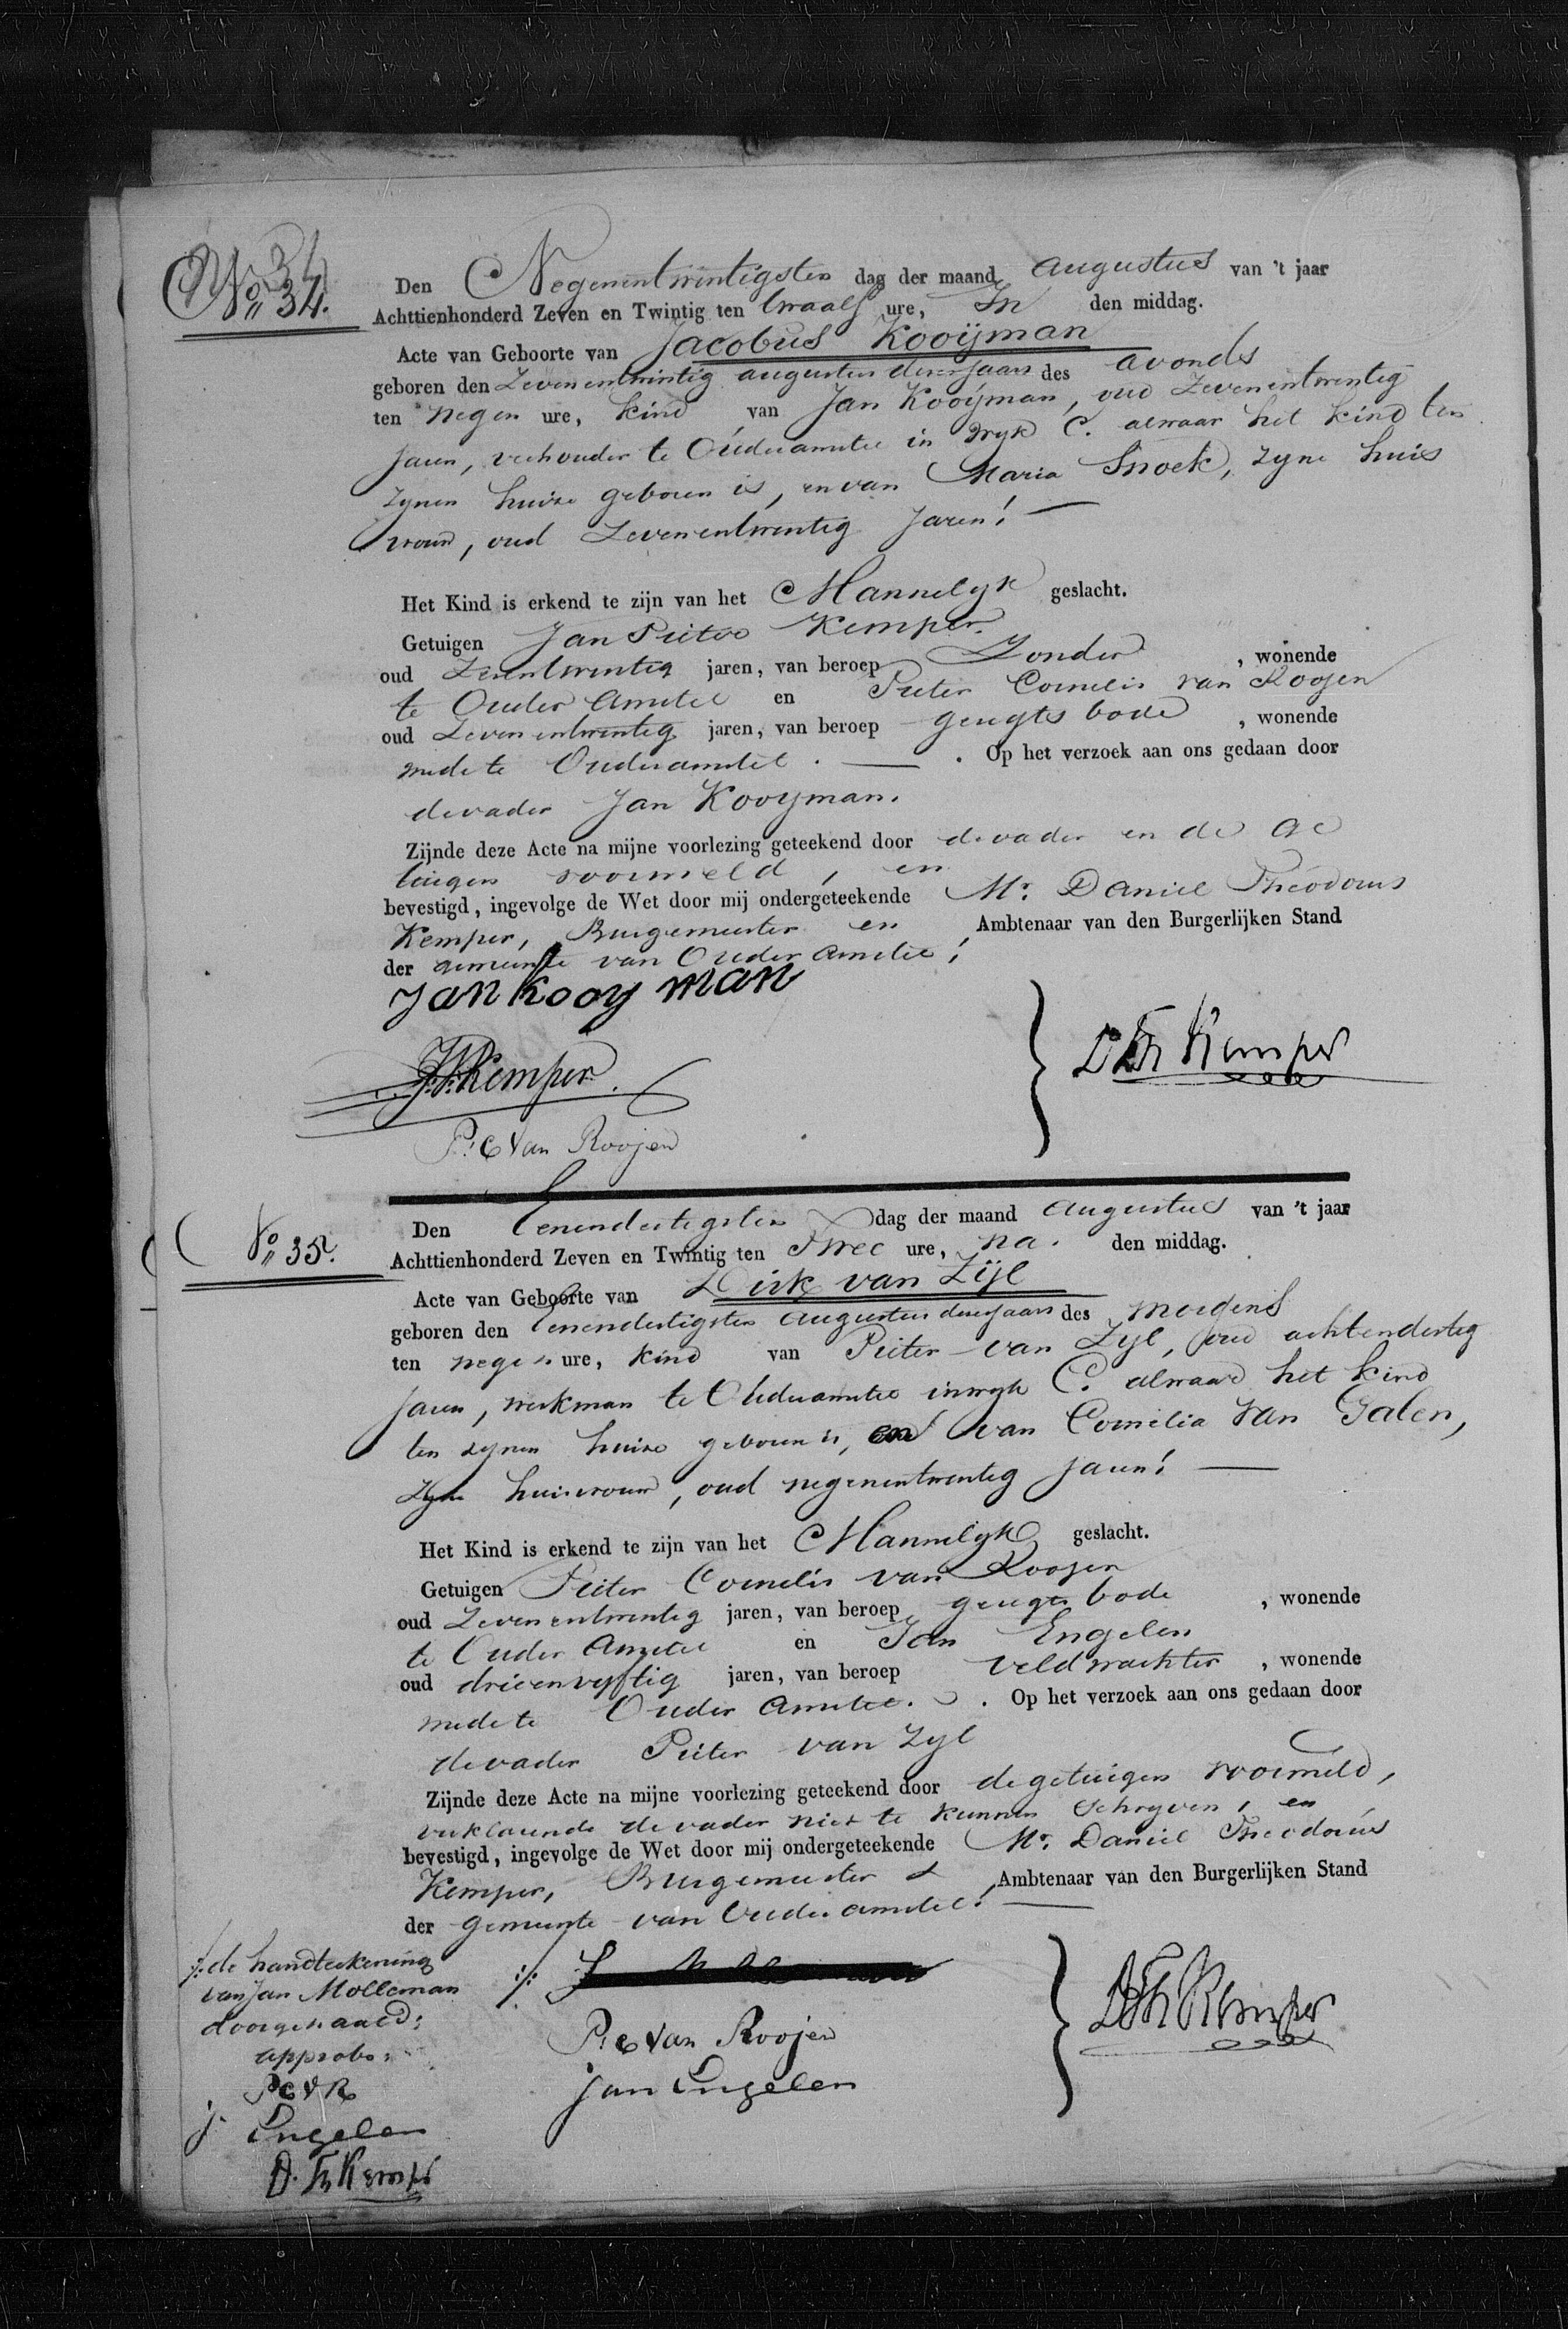 No 34.
Den Negenentwintigsten dag der maand augustus van 't jaar
Achttienhonderd Zeven en Twintig ten twaalf ure, In den middag.
Acte van Geboorte van Jacobus Kooijman
geboren den Zevenentwintig augustus dezes jaars des avonds
ten negen ure, kind van Jan Kooijman, oud Zevenentwentig
jaren, veehouder te Ouderamstel in wyk C. alwaar het kind ten
zynen huize geboren is, en van Maria Snoek, zyne huis
vrouw, oud Zevenentwentig Jaren!
Het Kind is erkend te zijn van het Mannelyk geslacht.
Getuigen Jan Pieter Kemper.
oud Zesentwentig jaren, van beroep Zonder, wonende
te Ouder Amstel en Pieter Cornelis van Roojen
oud Zevenentwentig jaren, van beroep geregts bode, wonende
mede te Ouderamstel. . Op het verzoek aan ons gedaan door
de vader Jan Kooyman.
Zijnde deze Acte na mijne voorlezing geteekend door de vader en de ge
tuigen voormeld, en
bevestigd, ingevolge de Wet door mij ondergeteekende Mr. Daniel Theodorus
Kemper, Burgemeester en Ambtenaar van den Burgerlijken Stand
der gemeente van Ouder Amstel!
Jan Kooy man
J.P. Kemper
D Th Kemper
P: C Van Roojen
No 35.
Den Eenendertigsten dag der maand augustus van 't jaar
Achttienhonderd Zeven en Twintig ten Twee ure, na den middag.
Acte van Geboorte van Dirk van Zijl
geboren den Eenendertigsten augustus dezes jaars des morgens
ten negen ure, kind van Pieter van Zyl, oud achtendertig
jaren, werkman te Ouderamstel in wyk C. alwaar het kind
ten zynen huize geboren is, en van Cornelia Van Galen,
Zyne huisvrouw, oud negenentwentig Jaren!
Het Kind is erkend te zijn van het Mannelyk geslacht.
Getuigen Pieter Cornelis van Roojen
oud Zevenentwentig jaren, van beroep geregts bode, wonende
te Ouder Amstel en Jan Engelen
oud drieenvyftig jaren, van beroep Veldwachter, wonende
mede te Ouder Amstel. . Op het verzoek aan ons gedaan door
de vader Pieter van Zyl
Zijnde deze Acte na mijne voorlezing geteekend door de getuigen voormeld,
verklarende de vader niet te kunnen Schryven, en
bevestigd, ingevolge de Wet door mij ondergeteekende Mr. Daniel Theodorus
Kemper, Burgemeester & Ambtenaar van den Burgerlijken Stand
der gemeente van Ouder amstel!
de handteekening
van Jan Molleman
doorgehaald:
approbo:
PCVR
J. Engelen
D. Th Kemper
P: C Van Roojen
Jan Engelen
D Th Kemper